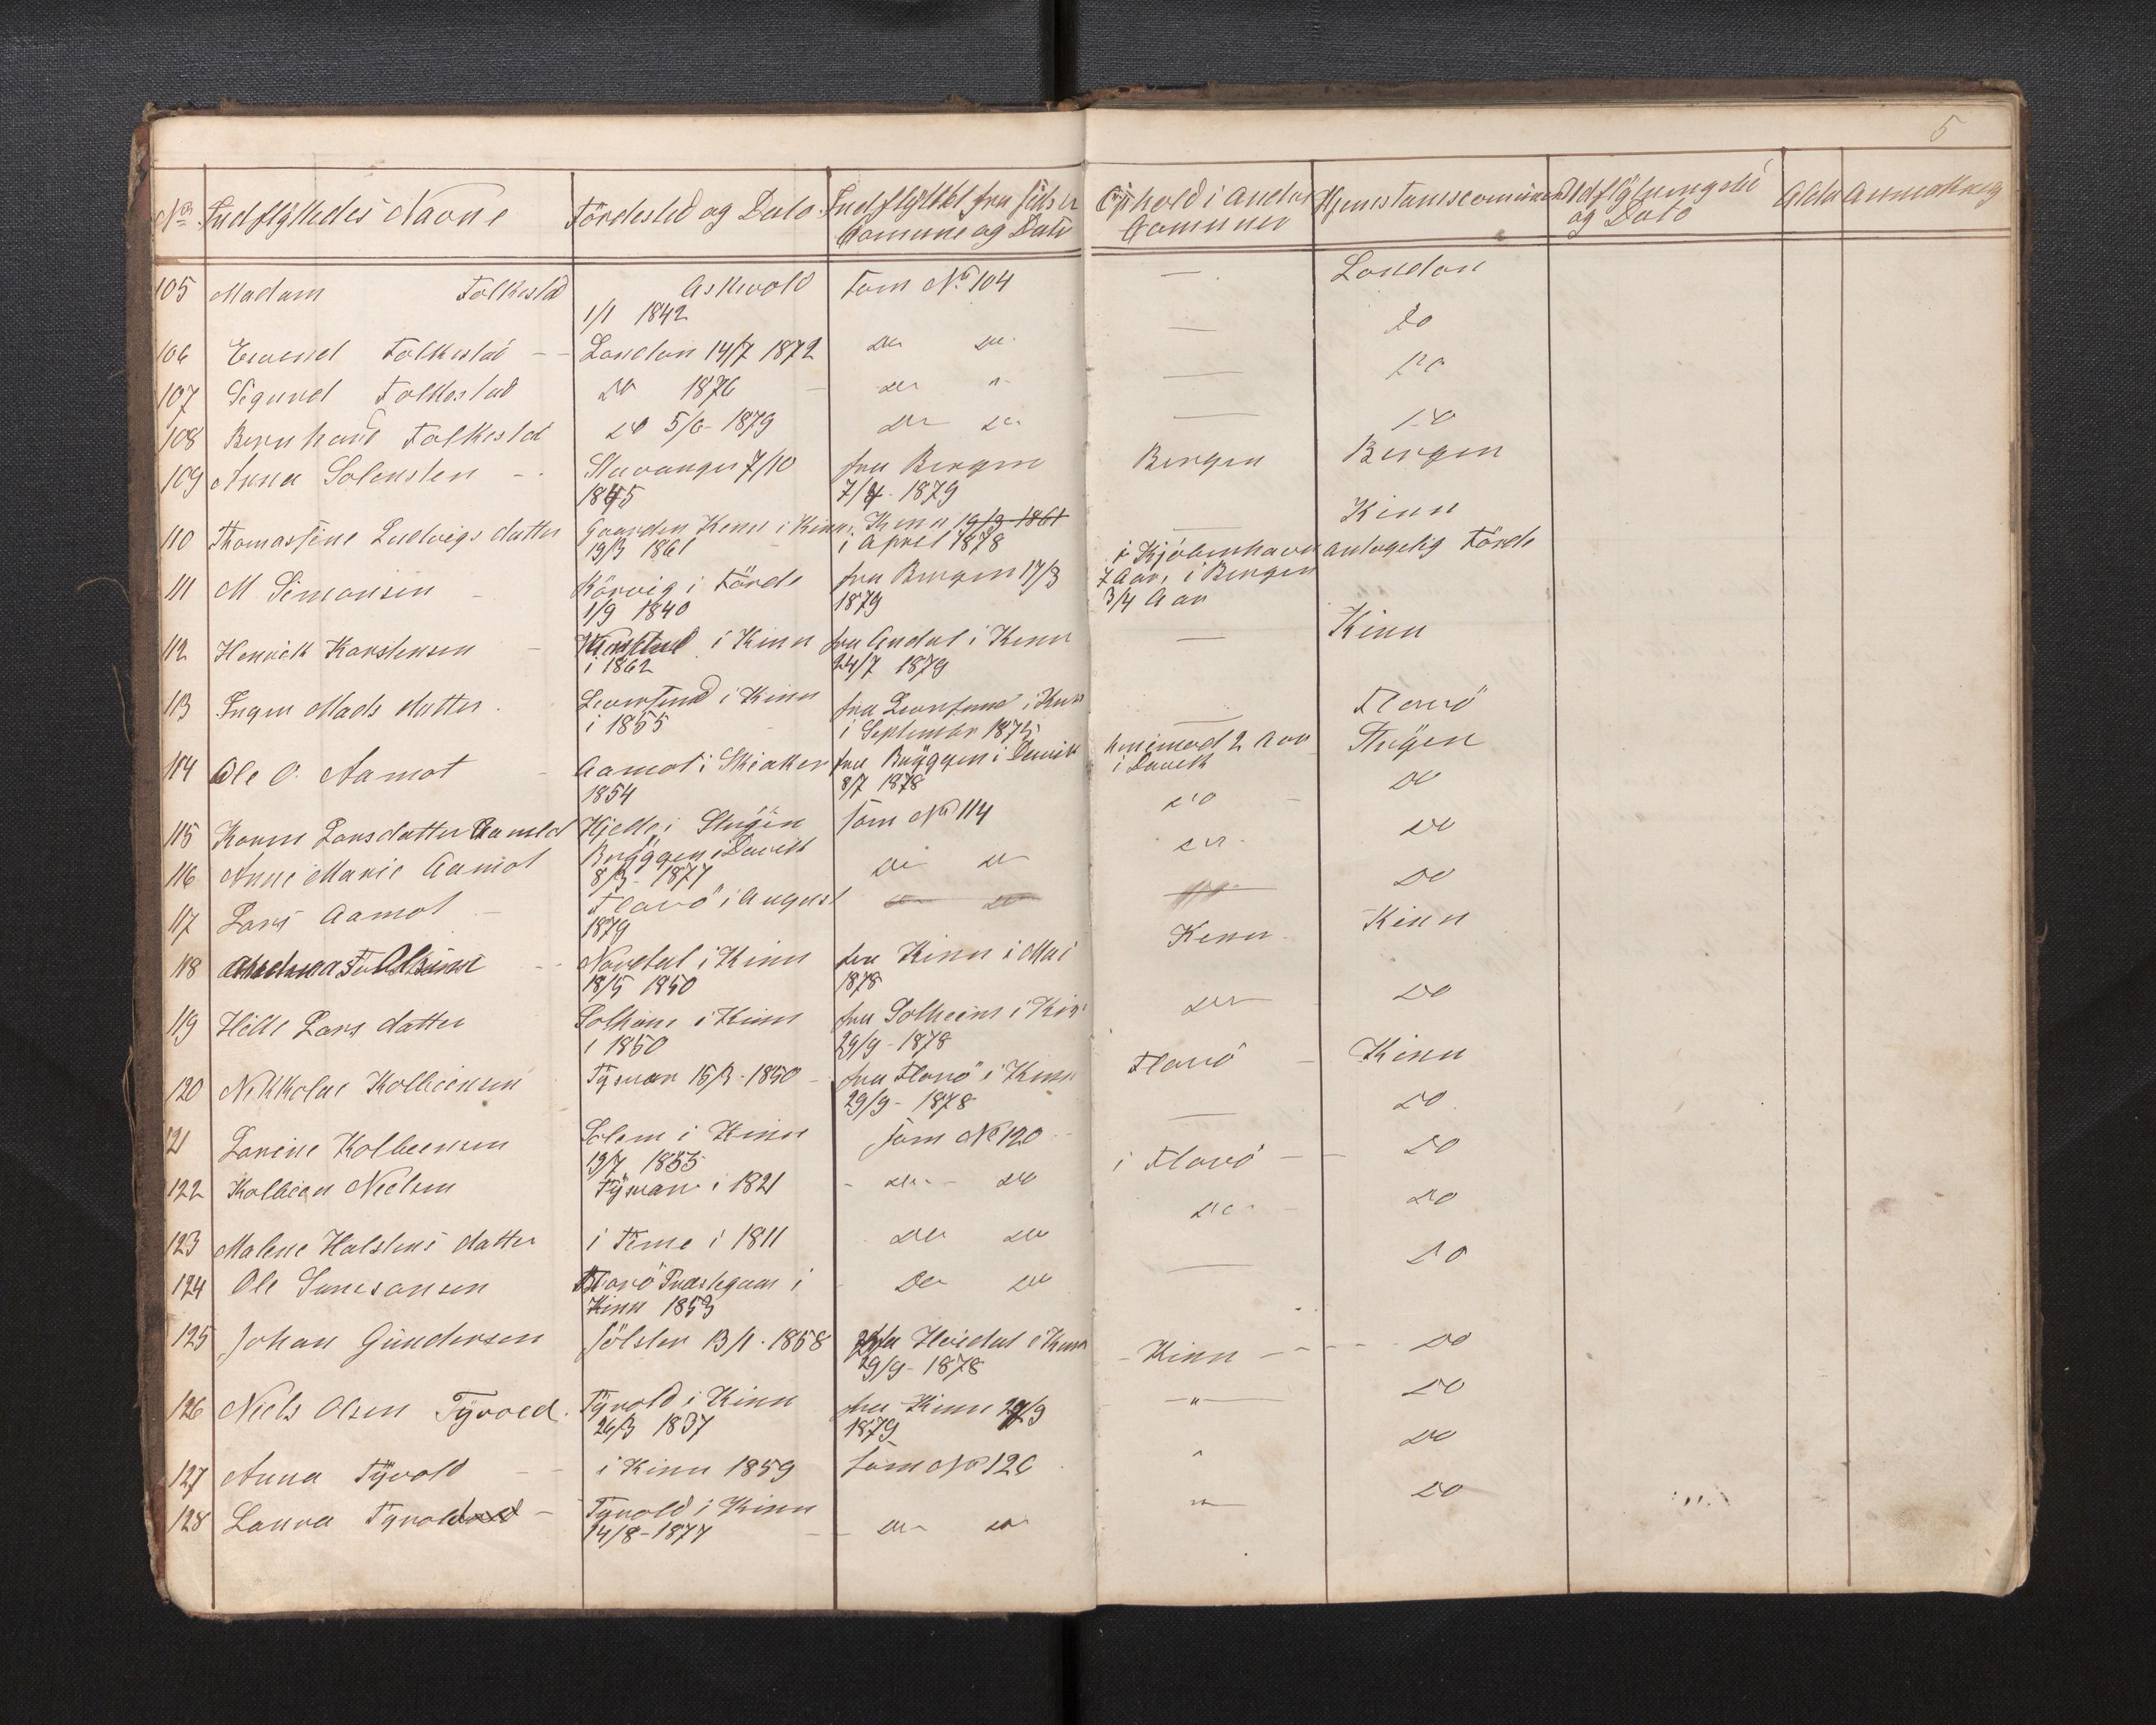 5
No Indflyttedes Navne Födested og Dato Indflyttet fra sidste Comune og Dato Ophold i andre Comuner Hjemstavnscomune Udflytningsted og Dato Alder Anmærkning
105 Madam Folkestad Askevold 1/1 1842 som No 104 — London
106 Eivend Folkestad - - London 14/7 1872 do do — do
107 Sigurd Folkestad do 1876 - do " — do
108 Bernhard Folkestad do 5/6 1879 do do — do
109 Anna Solensten - Stavanger 7/10 1845 fra Bergen 7/4 - 1879 Bergen Bergen
110 Thomasine Ludvigs datter Gaarden Kinn i Kinn 19/3 1861 Kinn 19/3 1861 i April 1878 — Kinn
111 M Simonsen - i Förde 1/9 1840 fra Bergen 17/3 1879 i Kjöbenhavn 7 Aar, i Bergen 3/4 Aar antagelig Förde
112 Henrik Karstensen - i Kinn i 1862 fra i Kinn 24/7 1879 — Kinn
113 Inger Mads datter i Kinn i 1855 fra i Kinn i September 1875 — Florö
114 Ole O. Aamot - Aamot i Skiaker 1854 fra Bryggen i Davik 8/7 1878 henimod 2 Aar i Davik Stryen
115 Karen Larsdatter Hjelle i Stryen som No 114 do - do
116 Anne Marie Aamot Bryggen i Davik 8/3 - 1877 do do do do
117 Lars Aamot - Florö i August 1879 do do do
118 - - Nordal i Kinn 18/5 1850 fra Kinn i Mai 1878 Kinn Kinn
119 Lars datter Solheim i Kinn i 1850 fra Solheim i Kinn 29/9 - 1878 do do
120 Nikkolai Kolbeensen Tysvær 15/3 - 1850 - fra Florö i Kinn 29/9 - 1878 Florö - Kinn
121 Larine Kolbeensen Solem i Kinn 19/7 1855 som No 120 — do
122 Kolbeen Nielsen Tysvær i 1821 - do - do i Florö - - do
123 Malene Halstens datter i Time i 1811 do do do - do
124 Ole Simesonsen Florö Præstegaar i Kinn 1853 do do — do
125 Johan Gundersen Jölster 13/1 - 1858 fra i Kinn 29/9 - 1878 - Kinn - - - - do
126 Niels Olsen Tyvold Tyvold i Kinn 26/3 1837 fra Kinn 29/9 1879 " do
127 Anna Tyvold - - i Kinn 1859 som No 126 " do
128 Laura Tyvold - Tyvold i Kinn 14/8 - 1877 - - do do " do